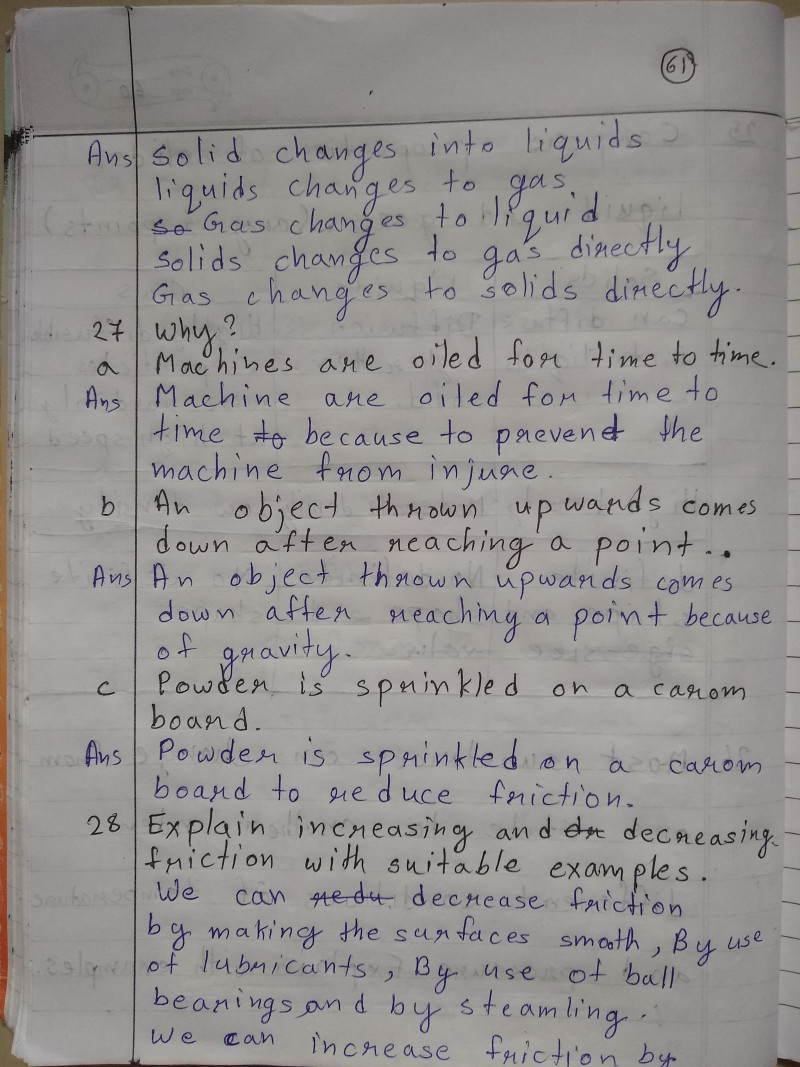 61
Ans Solid changes into liquids
liquids changes to gas.
so Gas changes to liquid
Solids changes to gas directly
Gas changes to solids directly.
27 Why?
a Machines are oiled for time to time.
Ans Machine are oiled for time to
time to because to prevent the
machine from injure.
b An object thrown upwards comes
down after reaching a point..
Ans An object thrown upwards comes
down after reaching a point because
of gravity.
c Powder is sprinkled on a carom
board.
Ans Powder is sprinkled on a carom
board to reduce friction.
28 Explain increasing and dr decreasing
friction with suitable examples.
We can redu decrease friction
by making the surfaces smoth, By use
of lubricants, By use of ball
bearings and by steamling.
We can increase friction by